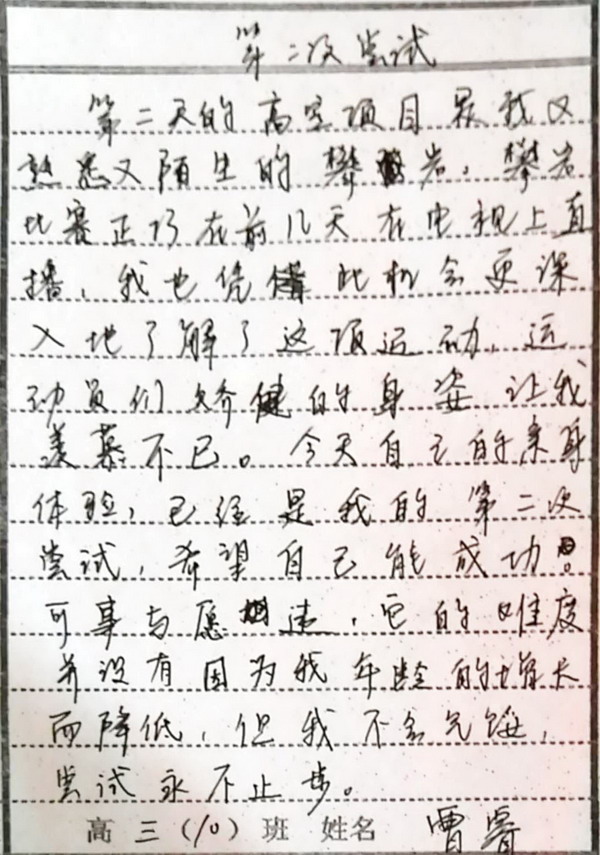 第二次尝试
第二天的高空项目是我又
熟悉又陌生的攀岩，攀岩
比赛正巧在前几天在电视上直
播，我也凭借此机会更深
入地了解了这项运动，运
动员们矫健的身姿让我
羡慕不已。今天自己的亲身
体验，已经是我的第二次
尝试，希望自己能成功。
可事与愿违，它的难度
并没有因为我年龄的增长
而降低，但我不会气馁，
尝试永不止步。
高三（10）班 姓名 曹睿